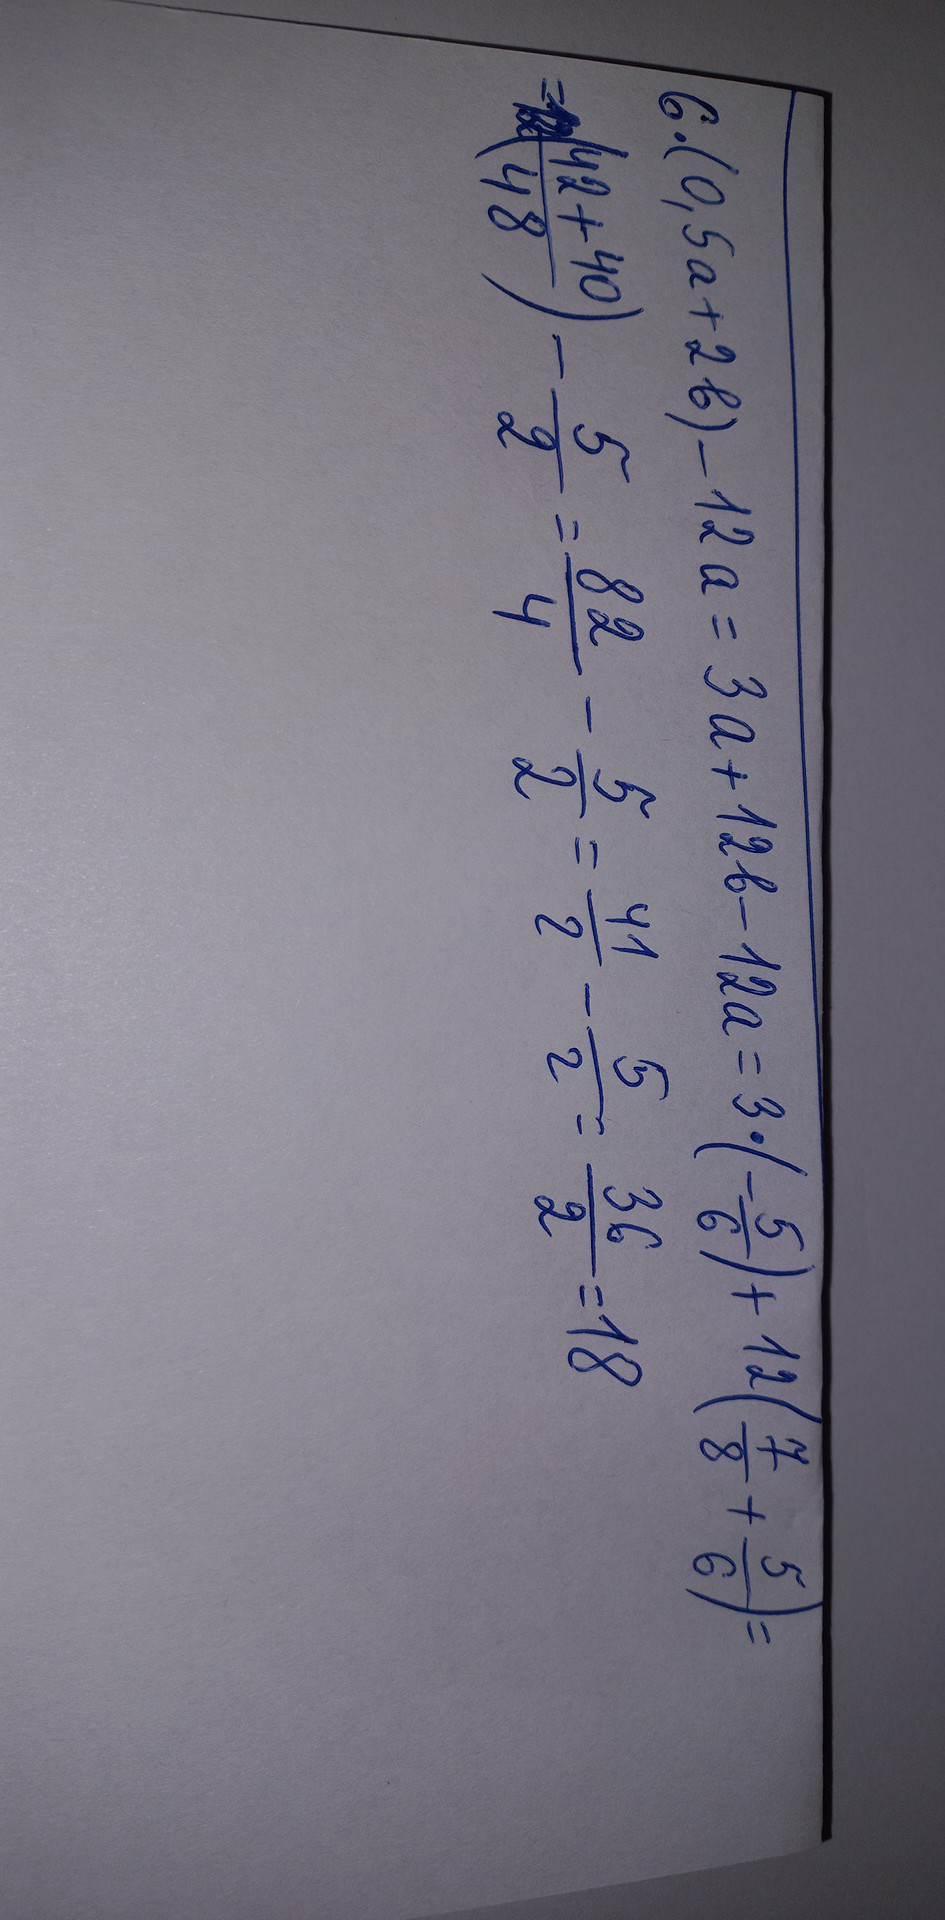 6·(0,5a+2b)-12a=3a+12b-12a=3·(-5/6)+12(7/8+5/6)=
=((42+40)/48)-5/2=82/4-5/2=41/2-5/2=36/2=18